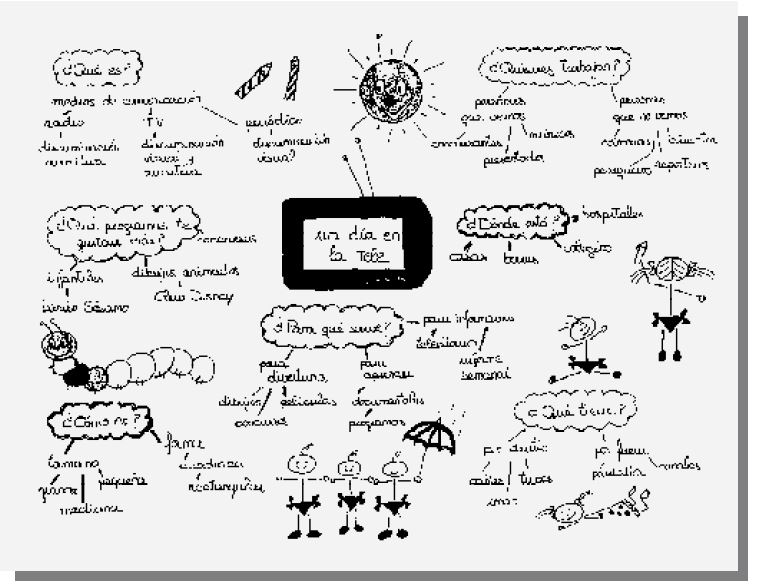 ¿Qué es?
medios de comunicación
radio
TV
periódico
discriminación
auditiva
discriminación
visual y
auditiva
discriminación
visual?
¿Quienes trabajan?
personas
que vemos
concursantes
presentador
músicos
personas
que no vemos
cámaras
peluquero
reportero
un día en
la Tele
¿Qué programas te
gustan más?
concursos
infantiles
Barrio Sésamo
dibujos animados
Club Disney
¿Dónde está?
hospitales
casas
bares
colegio
¿Para qué sirve?
para informarnos
telediario
informe
semanal
para
divertirnos
dibujos
películas
concursos
para
aprender
documentales
programas
¿Cómo es?
tamaño
grande
mediano
pequeño
forma
cuadrada
rectangular
¿Qué tiene?
por dentro
cables
tubos
por fuera
pantalla
mandos